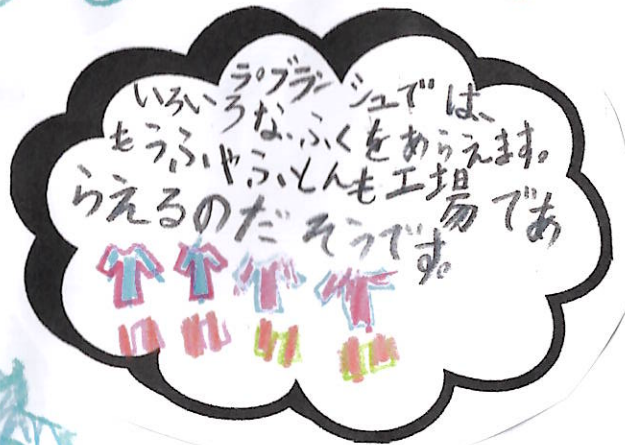 ラ゜ブランシュでは、
いろいろな、ふくをあらえます。
もうふやふとんも工場であ
らえるのだそうです。